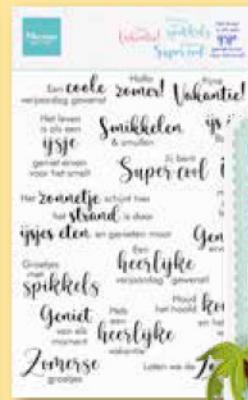 Marianne
Vakantie!
spikkels
ijsje
Super cool
Een coole
verjaardag gewenst
Hallo
zomer!
Fijne
Vakantie!
Het leven
is als een
ijsje
geniet ervan
voor het smelt
Smikkelen
& smullen
ijs
Jij bent
Super cool
Het zonnetje schijnt hier
het strand is daar
ijsjes eten en genieten maar
Gen
Groetjes
met
spikkels
Een
heerlijke
verjaardag gewenst!
Geniet
van elk
moment
Heb
een
heerlijke
vakantie
Houd
het hoofd
en
Zomerse
groetjes
Laten we de